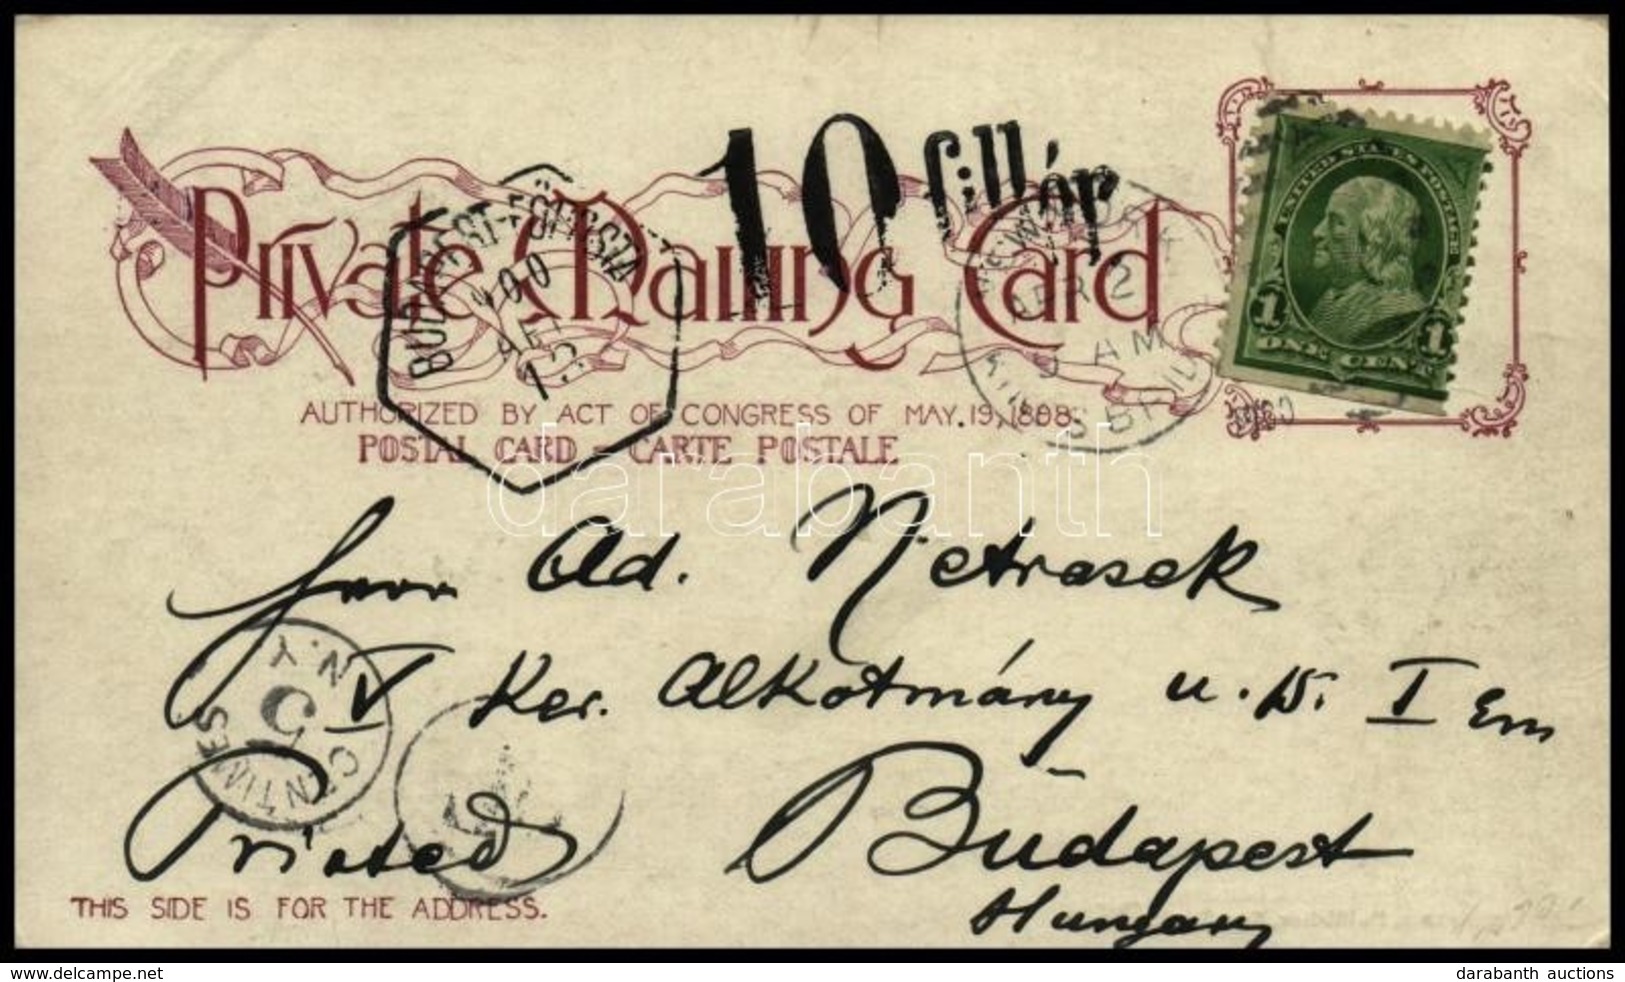 Private Mailing Card
10 fillér
UNITED STATES POSTAGE
1 1
ONE CENT
BUDAPEST-FŐPOSTA
900
13
NEW YORK
APR 2
AM
AUTHORIZED BY ACT OF CONGRESS OF MAY, 19, 1898.
POSTAL CARD – CARTE POSTALE
darabanth
Herr Ad. Netrasek
V Ker. Alkotmány u. 15. I Em
Budapest
Hungary
Printed
N.Y.
5
CENTIMES
T
THIS SIDE IS FOR THE ADDRESS.
delcampe.net
darabanth auctions